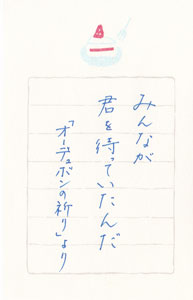 みんなが
君を待っていたんだ
「オーデュボンの祈り」より